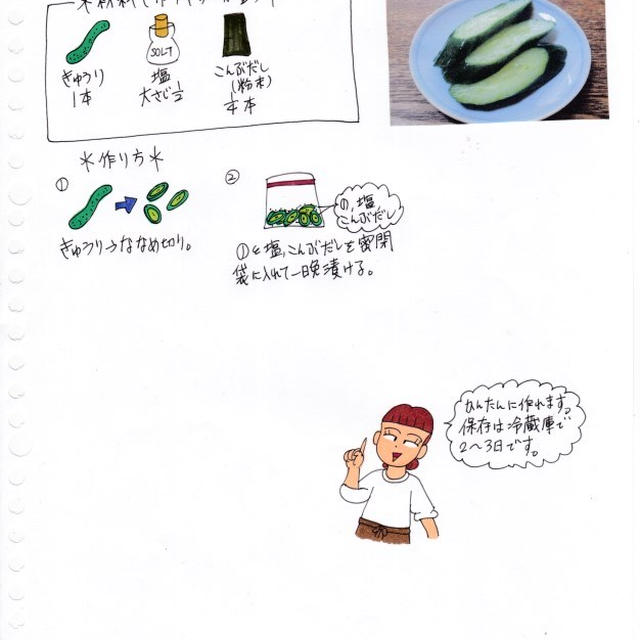 SOLT
きゅうり
1本
塩
大さじ1/2
こんぶだし
(粉末)
1/4本
*作り方*
①
きゅうり→ななめ切り。
②
①、塩
こんぶだし
①と塩、こんぶだしを密閉
袋に入れて一晩漬ける。
かんたんに作れます。
保存は冷蔵庫で
2〜3日です。